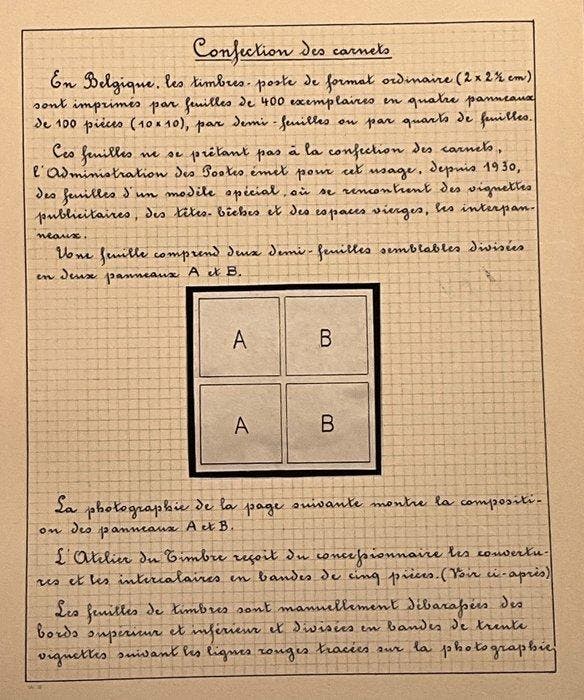 Confection des carnets
En Belgique, les timbres-poste de format ordinaire (2 x 2½ cm)
sont imprimés par feuilles de 400 exemplaires en quatre panneaux
de 100 pièces (10 x 10), par demi-feuilles ou par quarts de feuilles.
Ces feuilles ne se prêtant pas à la confection des carnets,
l'Administration des Postes émet pour cet usage, depuis 1930,
des feuilles d'un modèle spécial, où se rencontrent des vignettes
publicitaires, des têtes-bêches et des espaces vierges, les interpan-
neaux.
Une feuille comprend deux demi-feuilles semblables divisées
en deux panneaux A et B.
A B
A B
La photographie de la page suivante montre la compositi-
on des panneaux A et B.
L'Atelier du Timbre reçoit du concessionnaire les couvertu-
res et les intercalaires en bandes de cinq pièces. (Voir ci-après)
Les feuilles de timbres sont manuellement débarasées des
bords supérieur et inférieur et divisées en bandes de trente
vignettes suivant les lignes rouges tracées sur la photographie